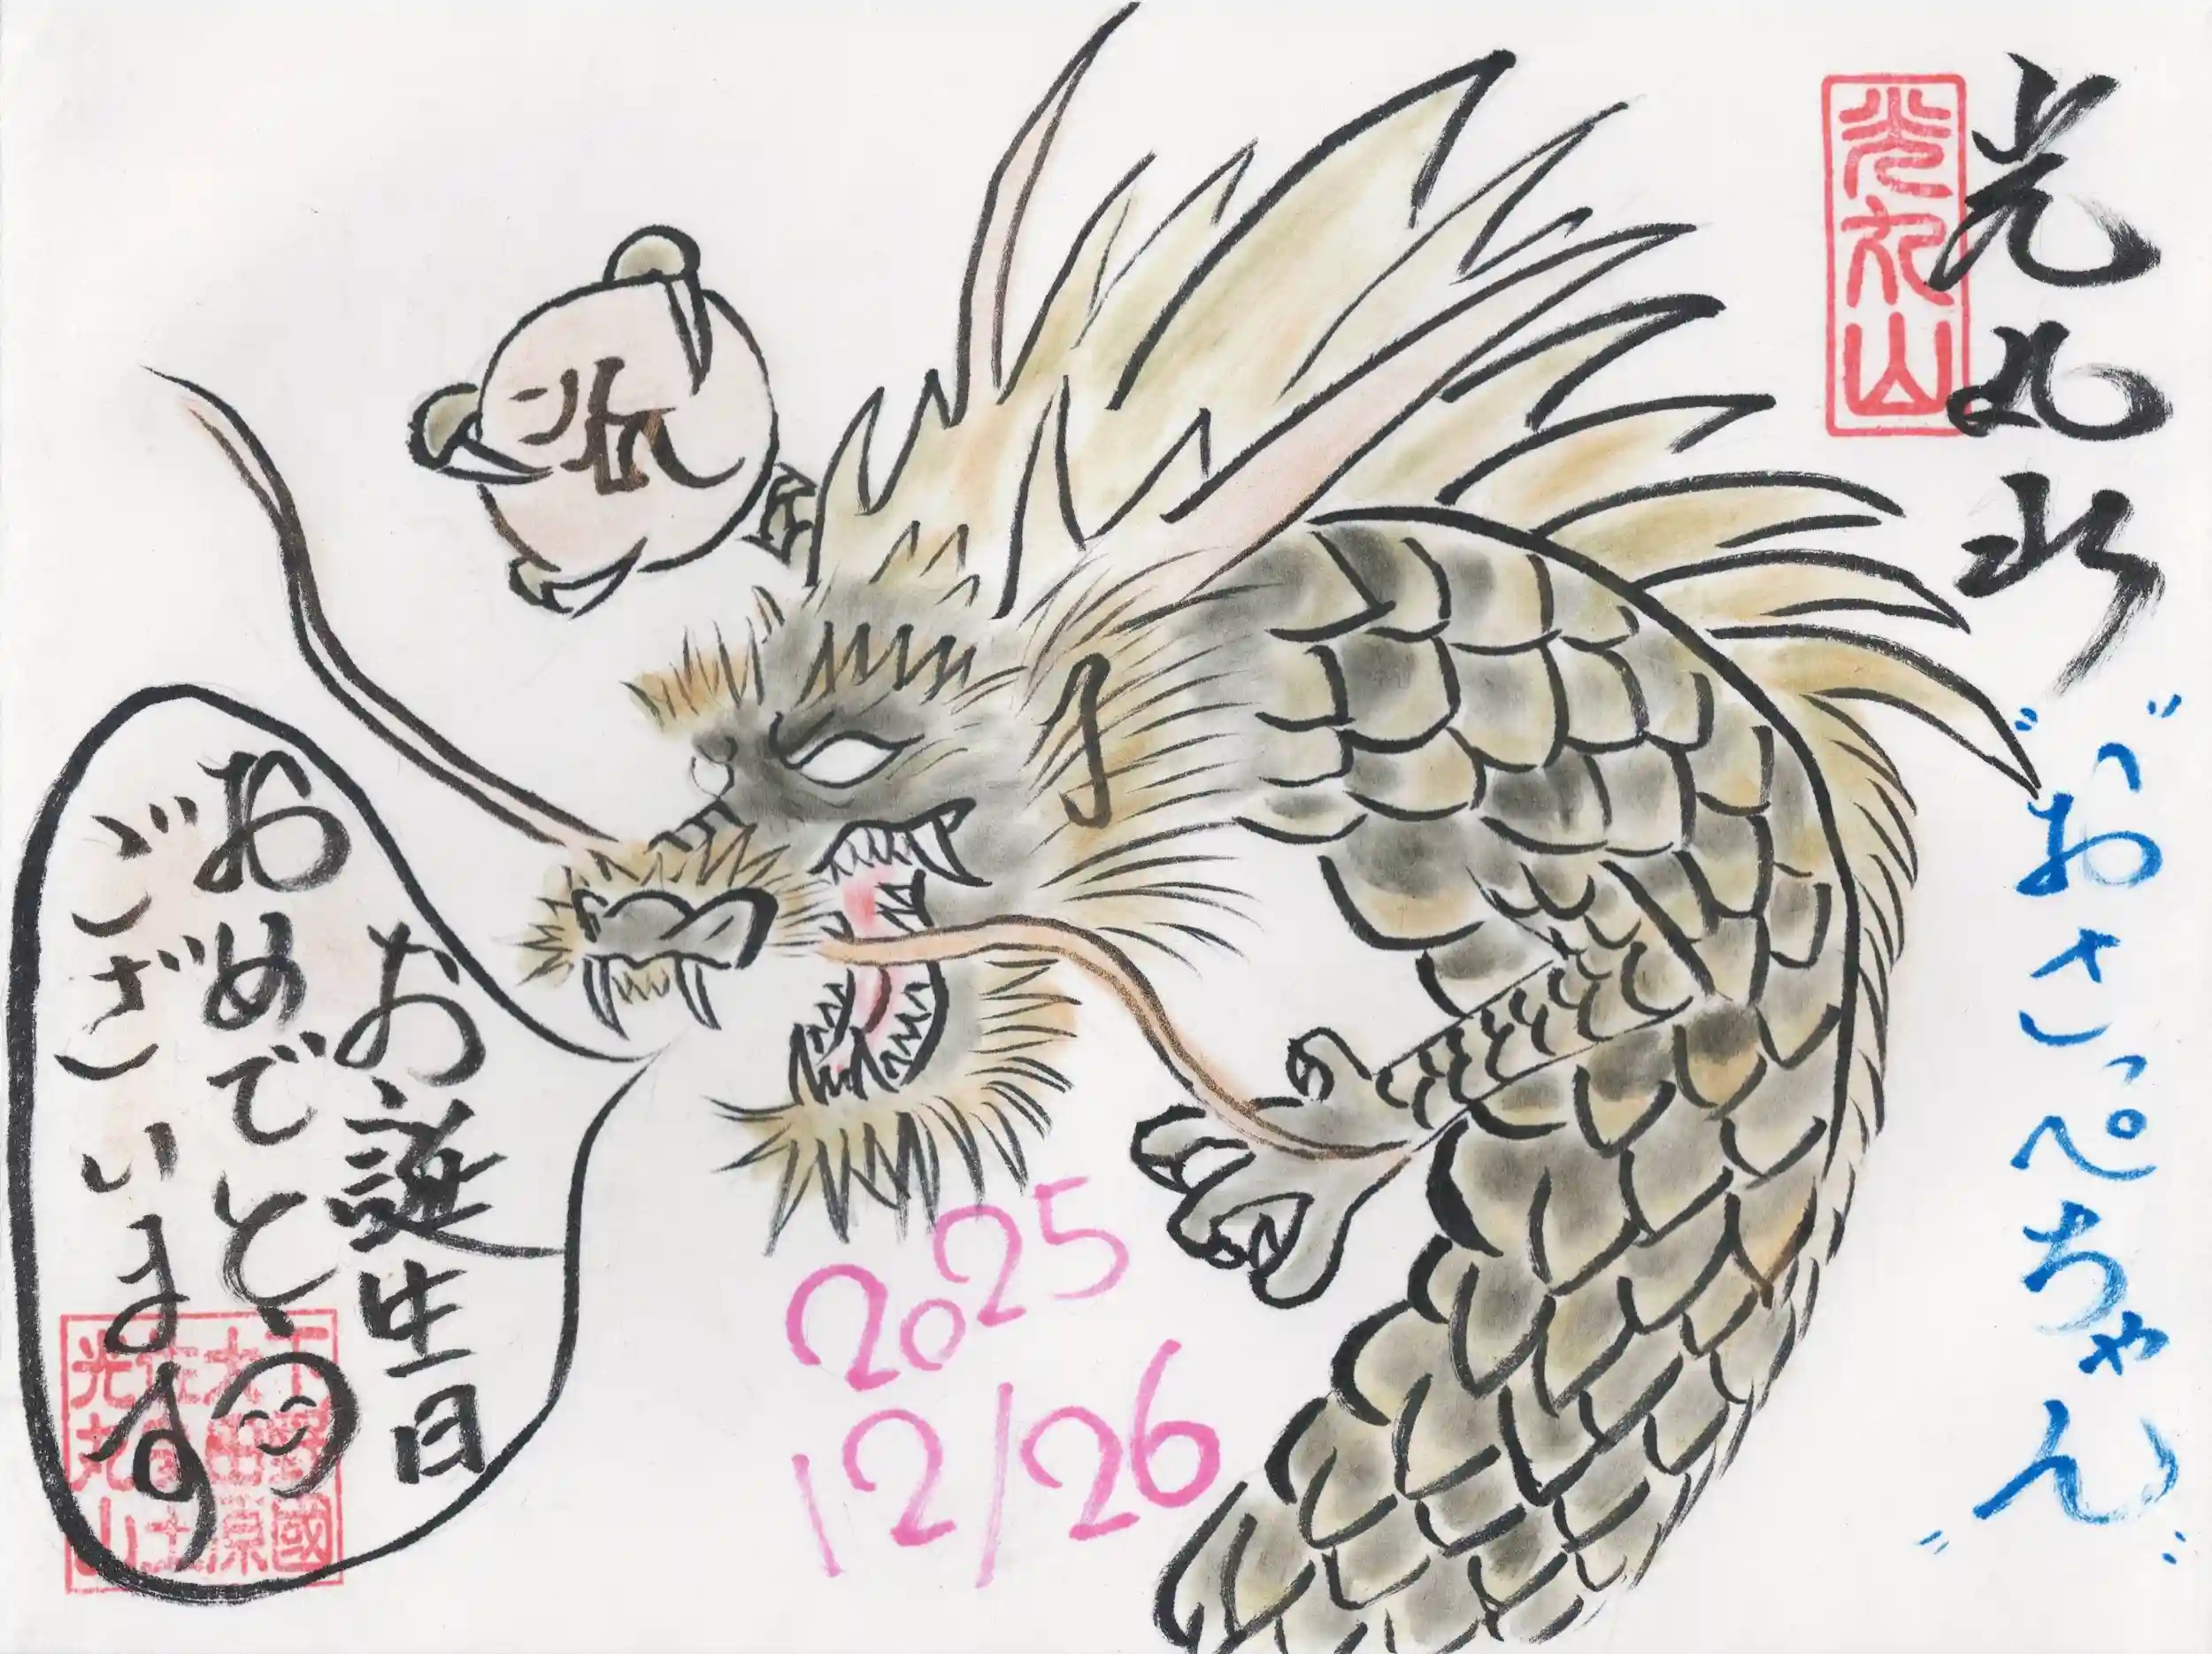 光丸山
光丸山
"おさっぺちゃん"
お誕生日
おめでとう
ございます
2025
12/26
下野國
光丸山